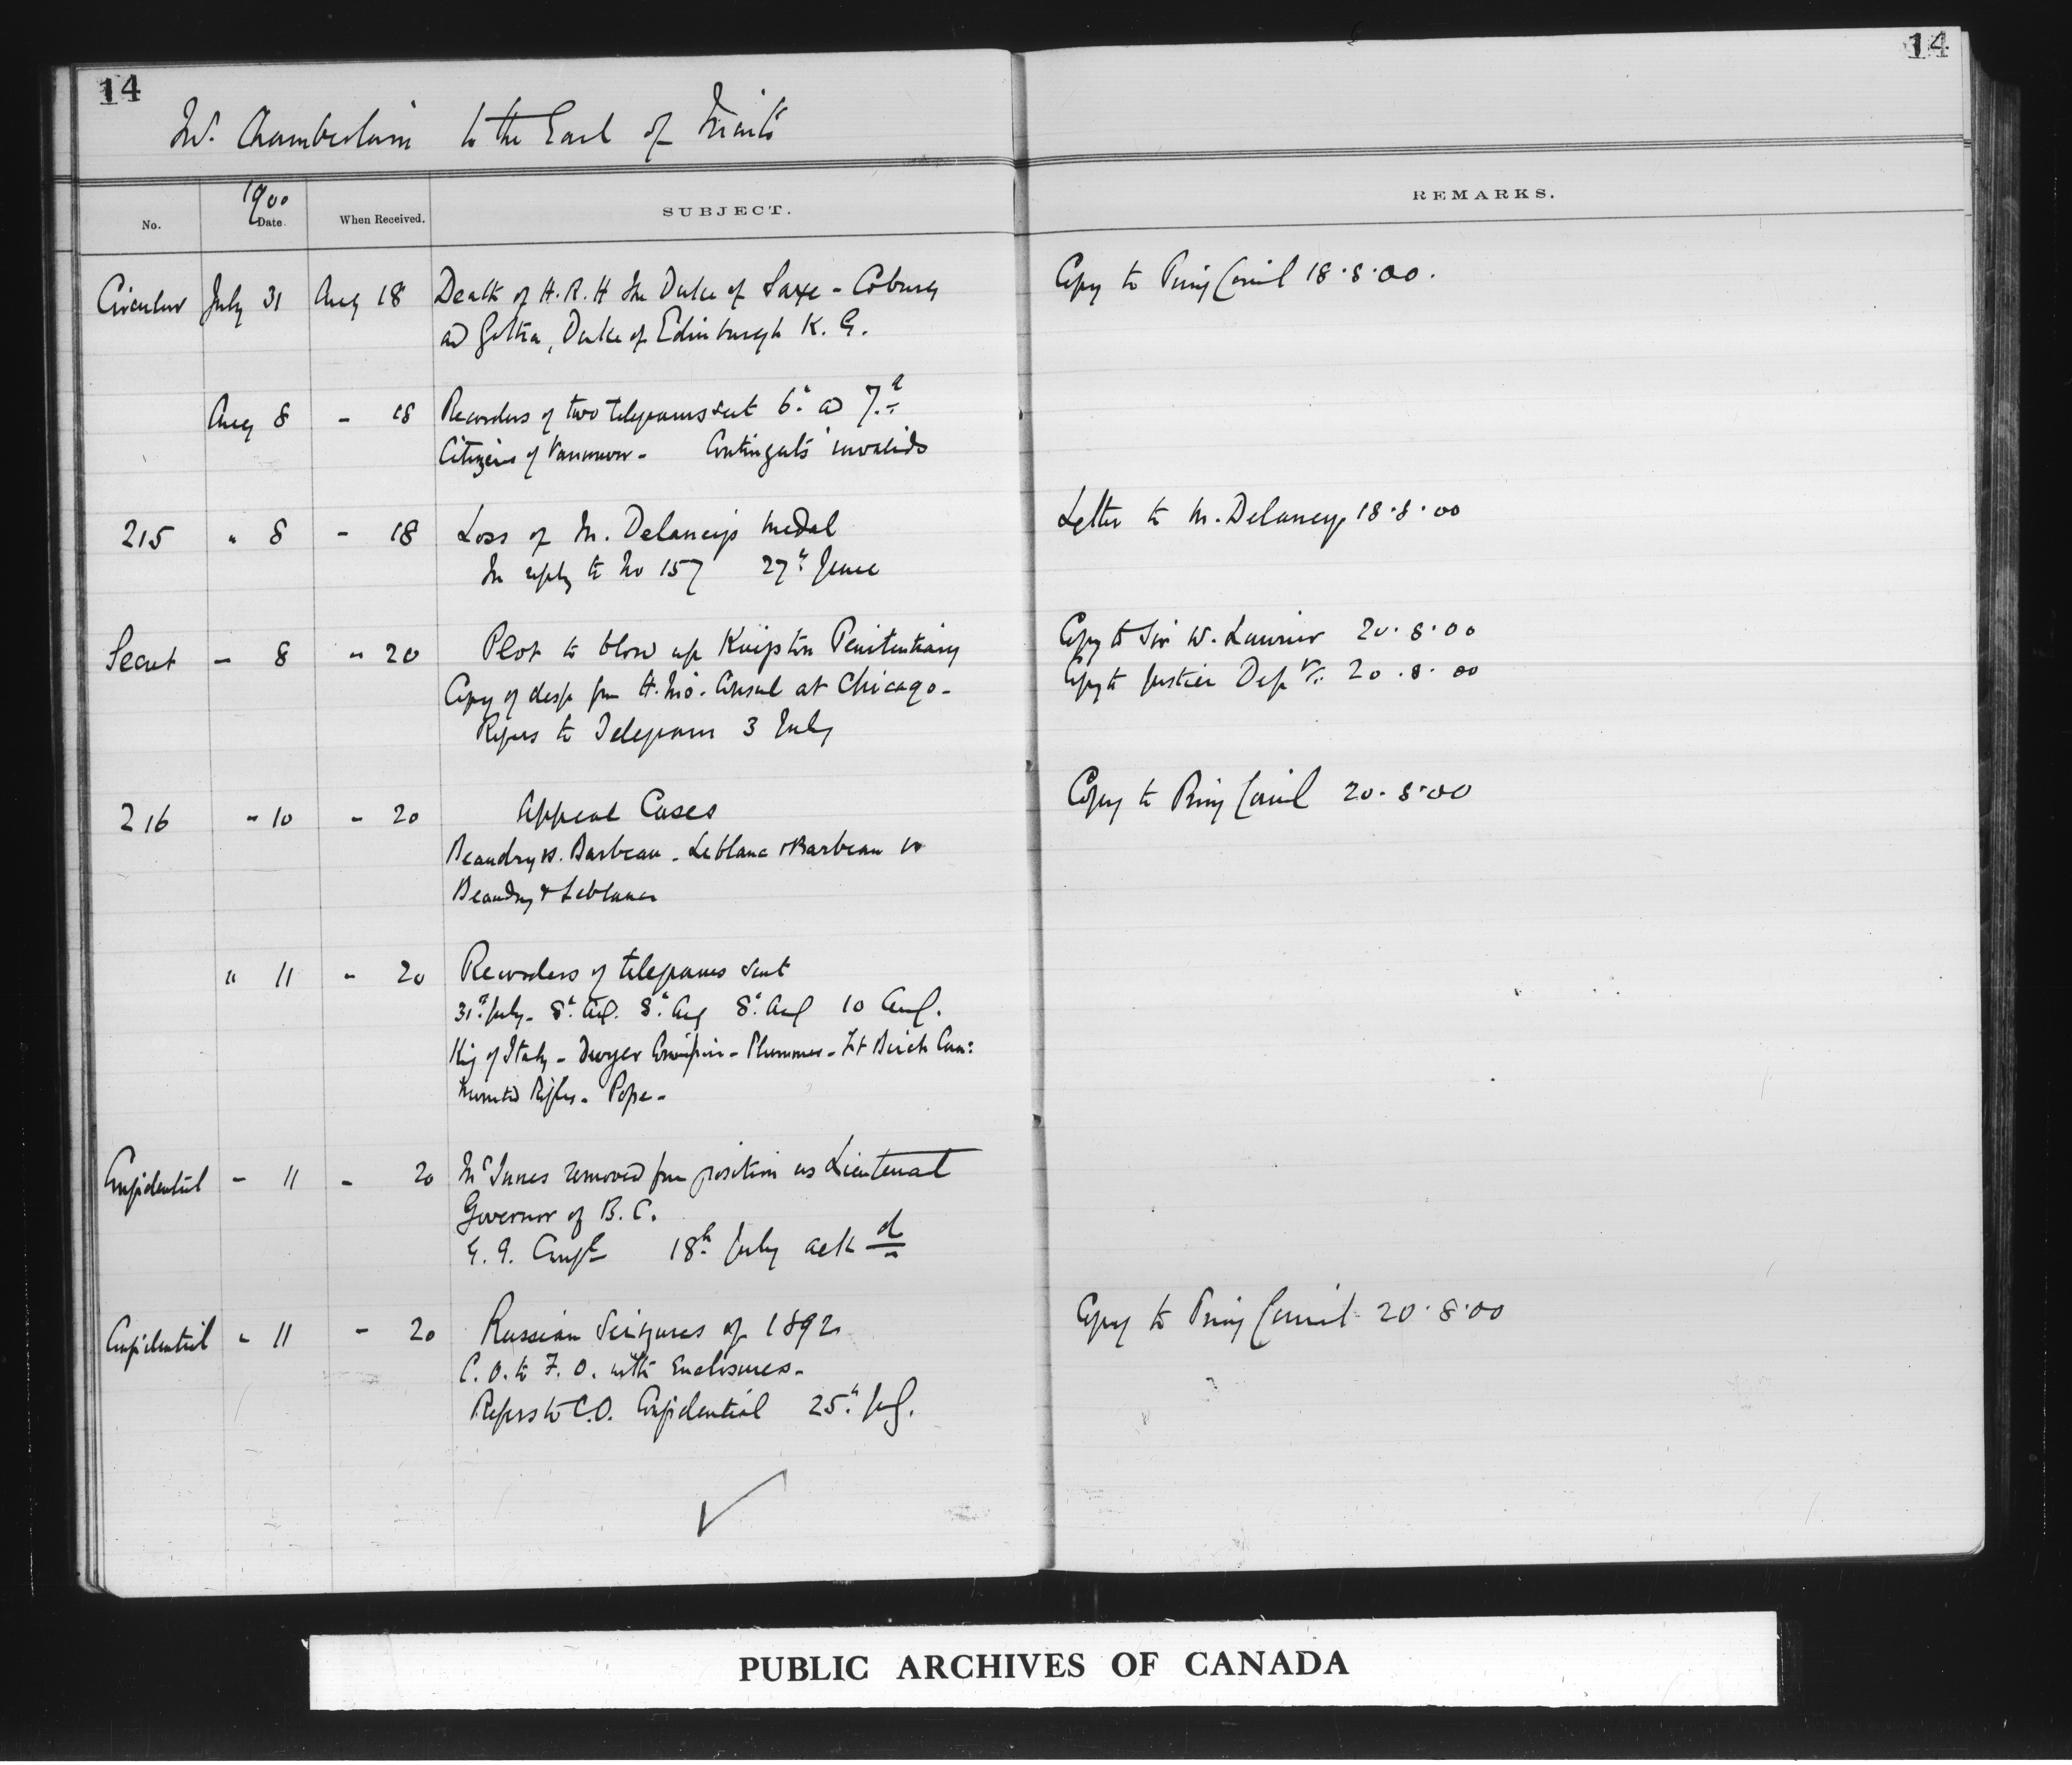 14
14
Mr. Chamberlain to the Earl of Minto
1900
No. Date. When Received. SUBJECT. REMARKS.
Circular July 31 Aug 18 Death of H.R.H the Duke of Saxe-Coburg Copy to Privy Council 18.8.00.
and Gotha, Duke of Edinburgh K.G.
Aug 8 - 18 Recorders of two telegrams sent 6th and 7th
Citizens of Vancouver - Contingents invalids
215 " 8 - 18 Loss of M. Delaney's medal Letter to M. Delaney 18.8.00
In reply to No 157 27th June
Secret - 8 " 20 Plot to blow up Kingston Penitentiary Copy to Sir W. Laurier 20.8.00
Copy of desp from H.M's. Consul at Chicago - Copy to Justice Dept. 20.8.00
Refers to Telegram 3 July
216 " 10 - 20 Appeal Cases Copy to Privy Council 20.8.00
Beaudry vs. Barbeau - Leblanc & Barbeau vs
Beaudry & Leblanc
" 11 - 20 Recorders of telegrams sent
31st July - 8th Aug. 8th Aug 8th Aug 10 Aug.
King of Italy - Dwyer - Plummer - Lt Birch Can:
Mounted Rifles - Pope -
Confidential - 11 - 20 McInnes removed from position as Lieutenant
Governor of B.C.
G.G. Conf 18th July ackd
Confidential " 11 - 20 Russian Seizures of 1892 Copy to Privy Council 20.8.00
C.O. to F.O. with Enclosures -
Refers to C.O. Confidential 25th
PUBLIC ARCHIVES OF CANADA